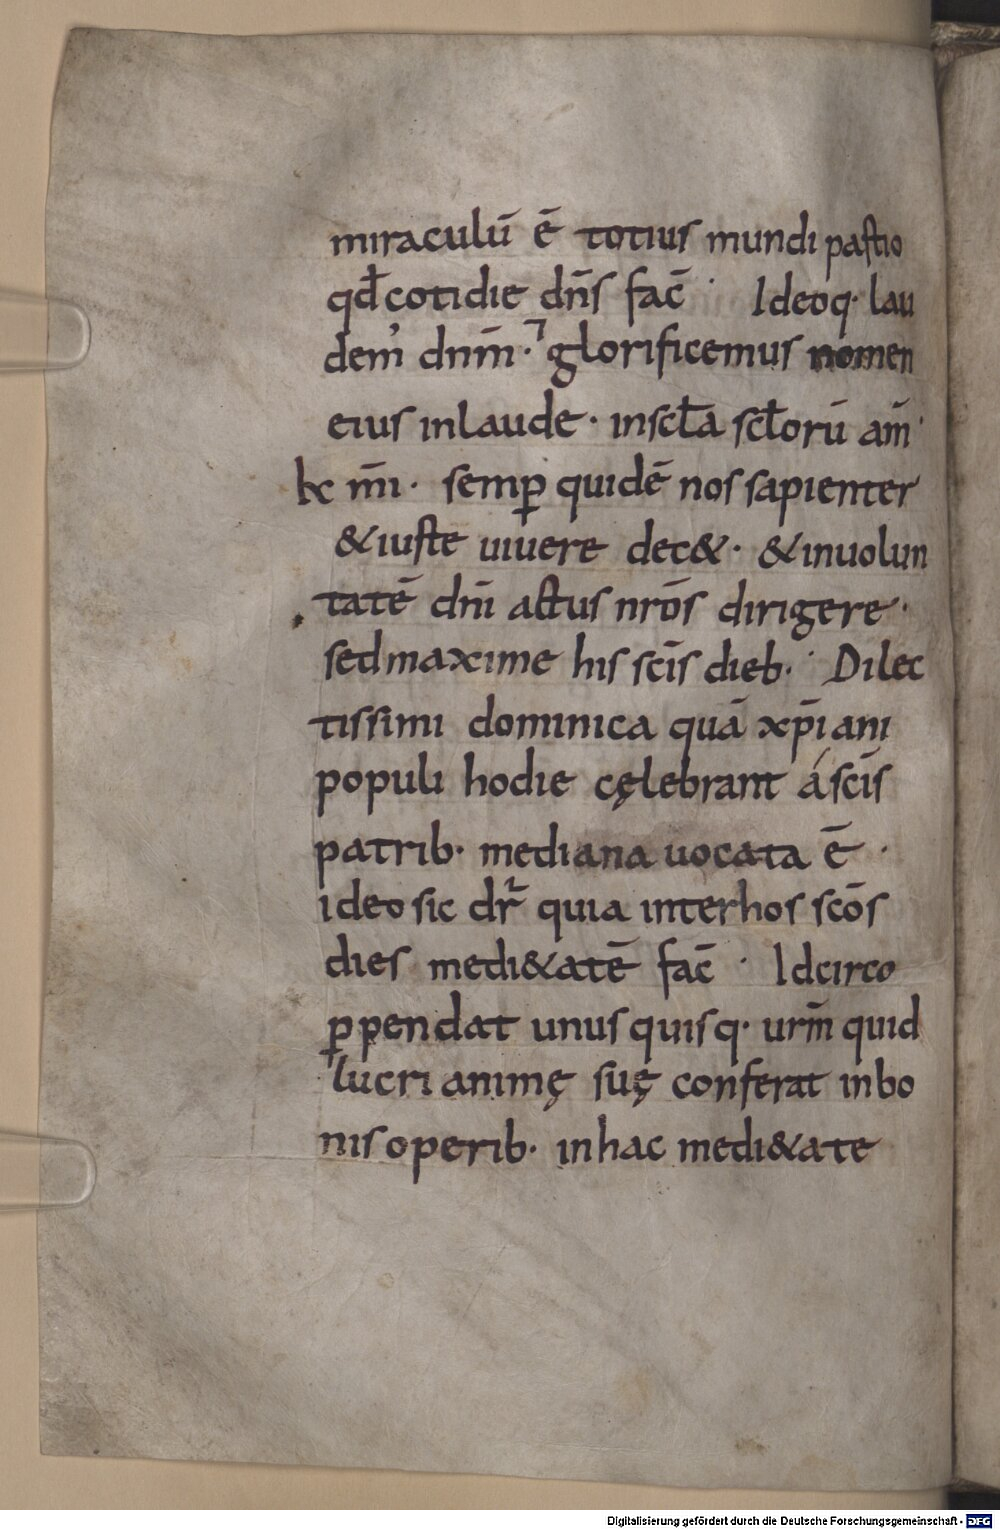 miraculū ē totius mundi pastio
qđ cotidie dn̄s fac̄ · Ideoq· lau
dem' dnm̄ · ⁊ glorificemus nomen
eius in laude · in scła scłorū am̄ ·
kc m̄i · semꝑ quidē nos sapienter
& iuste uiuere dec& · & in uolun
tatē dn̄i actus nr̄os dirigere ·
sed maxime his sc̄is dieb · Dilec
tissimi dominica quā xp̄iani
populi hodie cęlebrant á sc̄is
patrib · mediana uocata ē ·
ideo sic dr̄ quia inter hos sc̄os
dies medi&atē fac̄ · Idcirco
ꝑpendat unus quisq· urm̄ quid
lucri animę suę conferat in bo
nis operib · in hac medi&ate
Digitalisierung gefördert durch die Deutsche Forschungsgemeinschaft - DFG